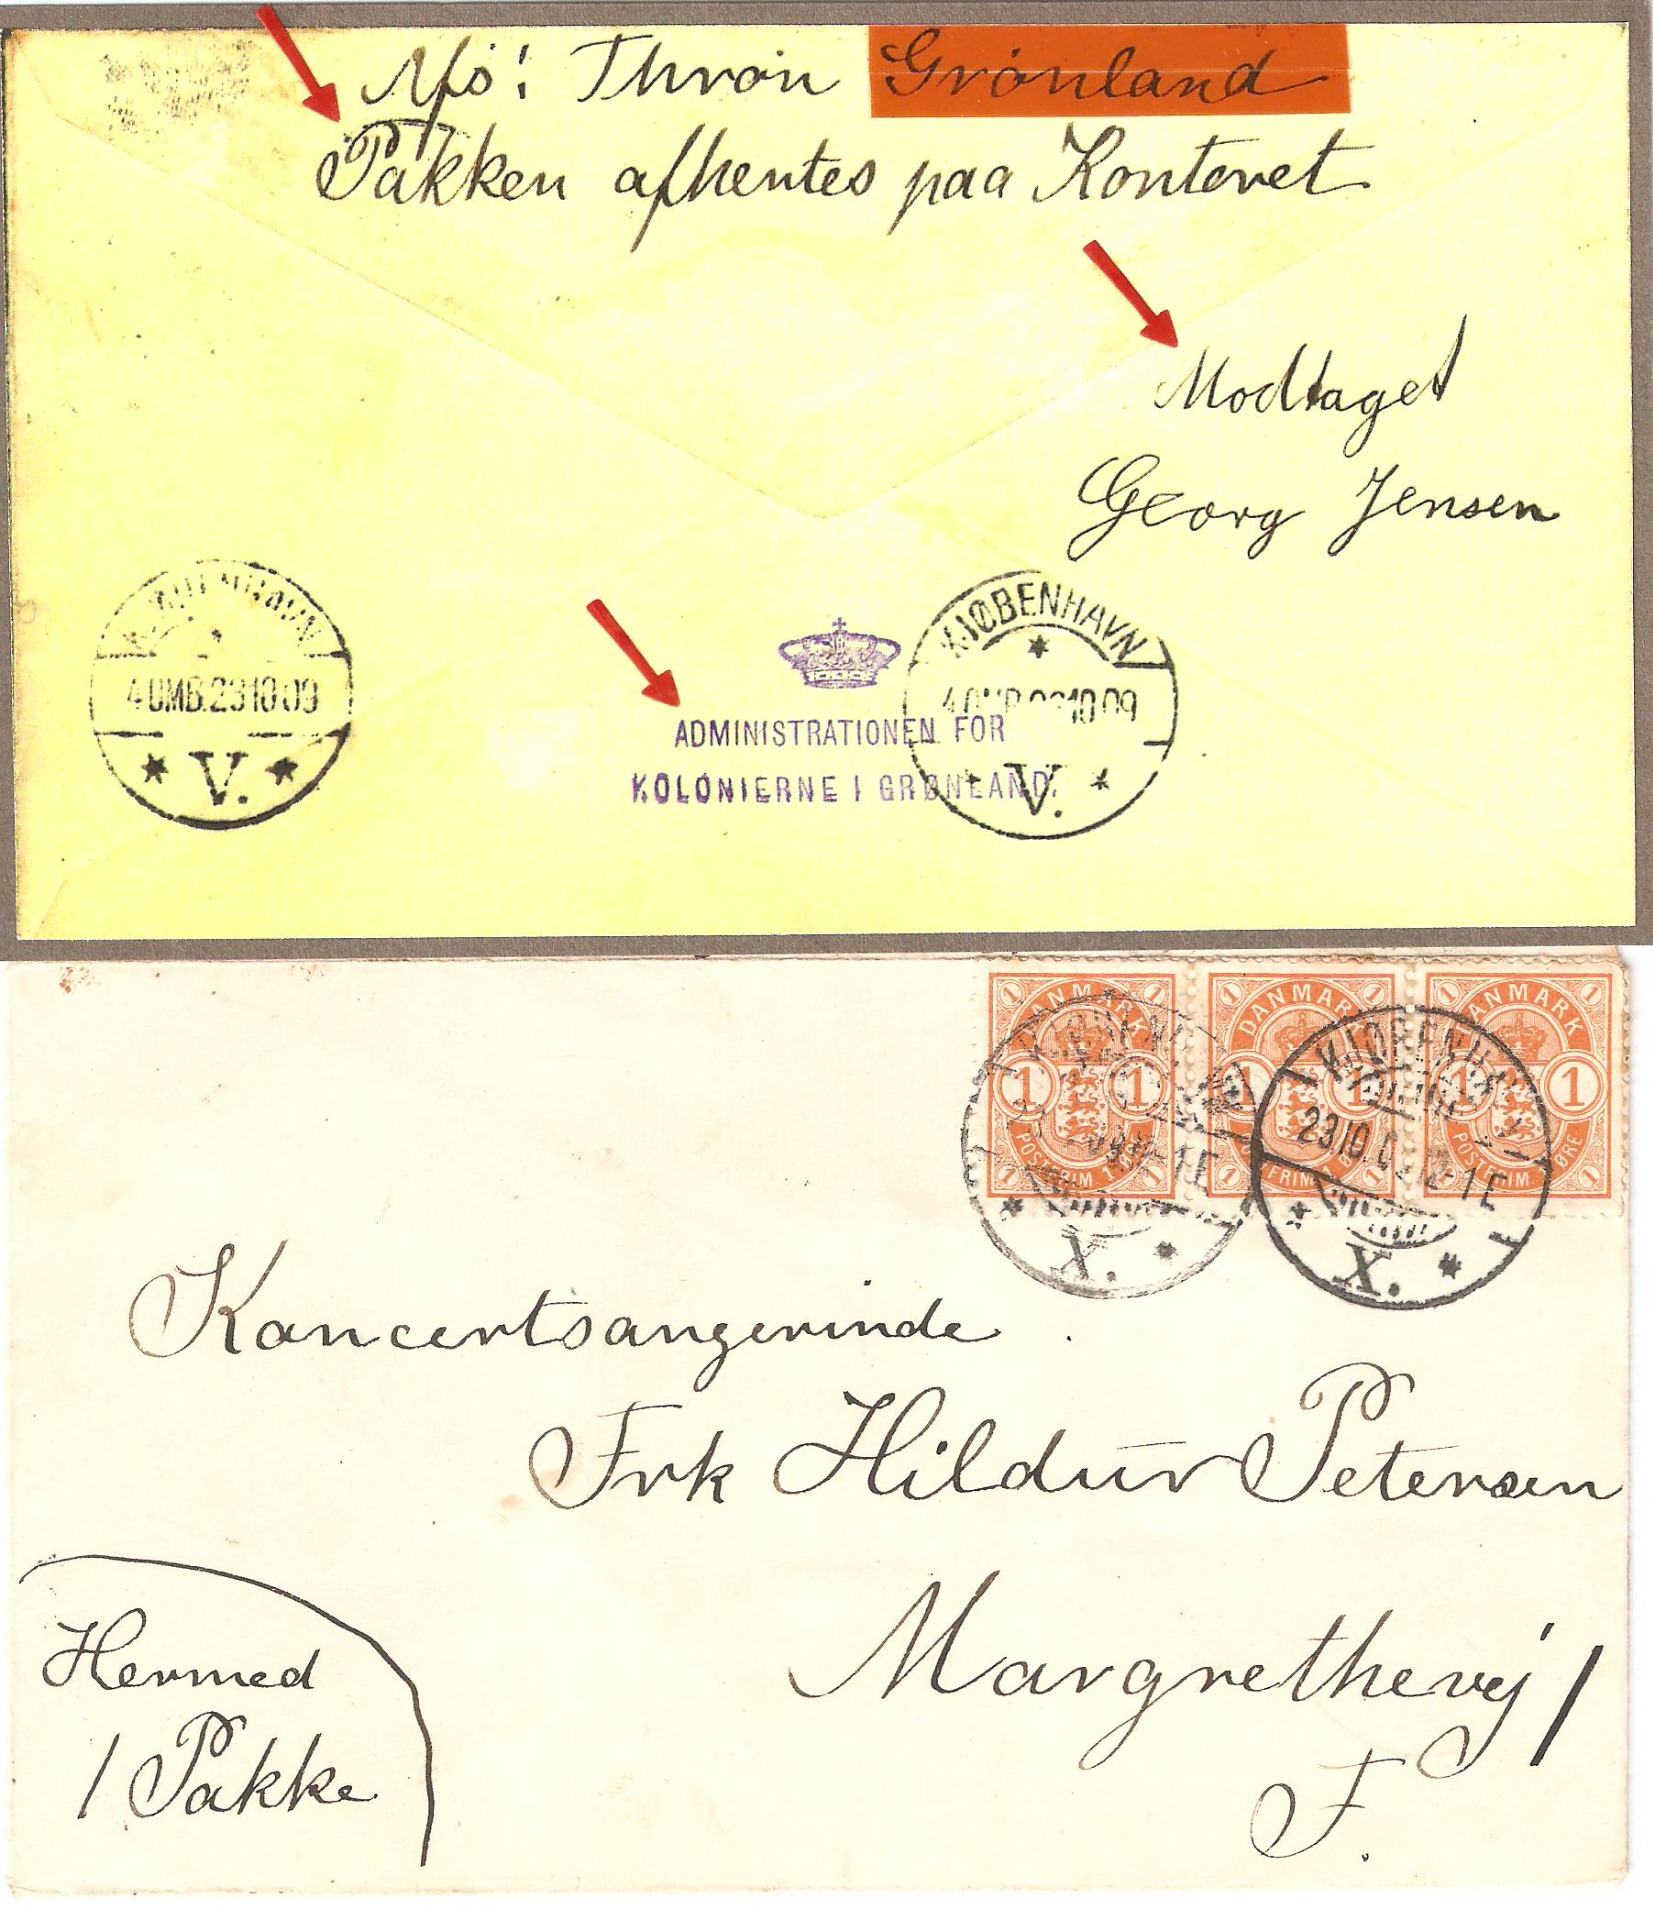 Afs: Thron Grønland
Pakken afhentes paa Kontoret
Modtaget
Georg Jensen
KJØBENHAVN
4.OMB.23 10 09
V.
KJØBENHAVN
V.
ADMINISTRATIONEN FOR
KOLONIERNE I GRØNLAND.
DANMARK
1 1
POSTFRIM. 1 ØRE
DANMARK
1 1
POSTFRIM. 1 ØRE
DANMARK
1 1
POSTFRIM. 1 ØRE
KJØBENHAVN
X.
KJØBENHAVN
23.10.09 12-1 E
X.
Koncertsangerinde
Frk Hildur Petersen
Margrethevej 1
F.
Hermed
1 Pakke